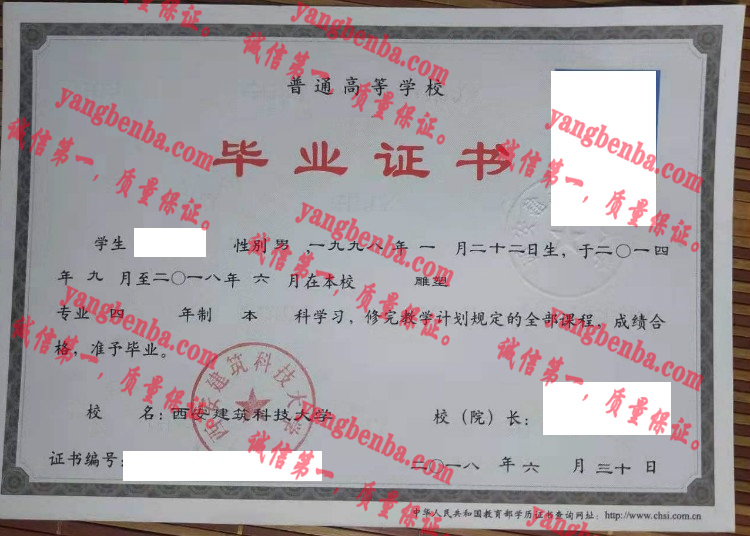 普通高等学校
毕业证书
学生 性别 男 , 一九九八 年 一 月二十二日生, 于二〇一四
年 九 月至二〇一八年 六 月在本校 雕塑
专业 四 年制 本 科学习, 修完教学计划规定的全部课程, 成绩合
格, 准予毕业。
校 名: 西安建筑科技大学 校（院）长:
证书编号: 二〇一八 年 六 月 三十 日
西安建筑科技大学
中华人民共和国教育部学历证书查询网址: http://www.chsi.com.cn
yangbenba.com
诚信第一, 质量保证。
yangbenba.com
诚信第一, 质量保证。
yangbenba.com
诚信第一, 质量保证。
yangbenba.com
诚信第一, 质量保证。
yangbenba.com
诚信第一, 质量保证。
yangbenba.com
诚信第一, 质量保证。
yangbenba.com
诚信第一, 质量保证。
yangbenba.com
诚信第一, 质量保证。